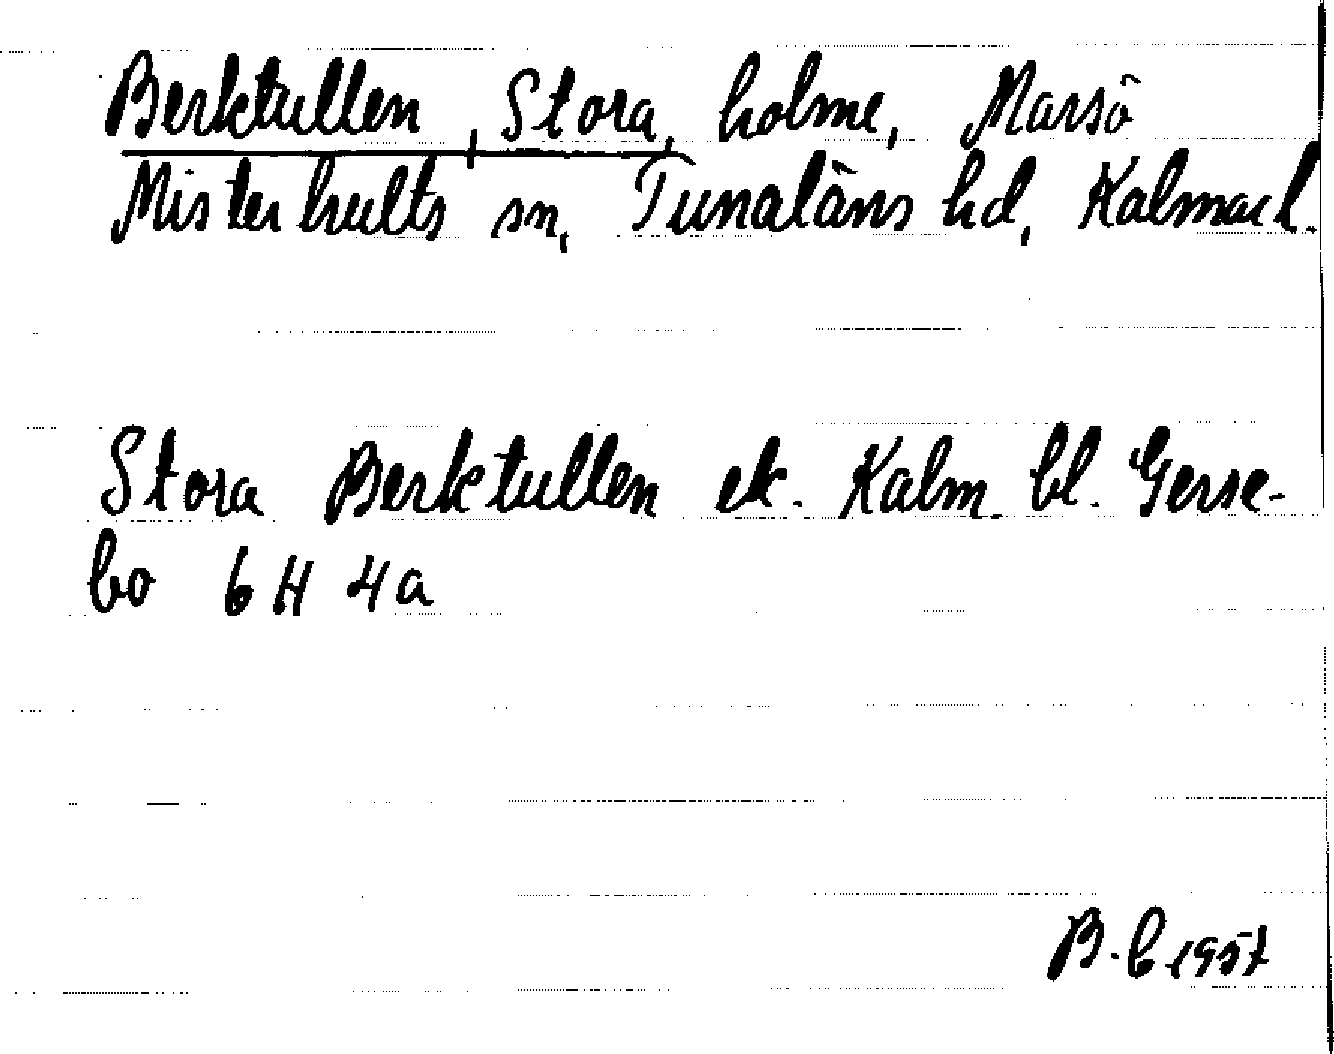 Berktullen, Stora, holme, Marsö
Misterhults sn, Tunaläns hd, Kalmar l.
Stora Berktullen ek. Kalm. bl. Gerse-
bo 6 H 4a
B. C 1957